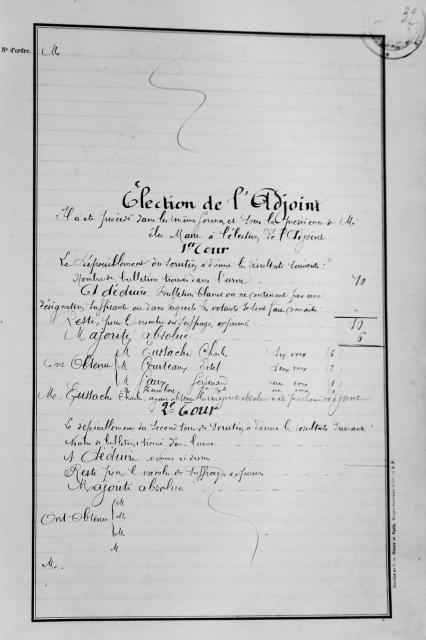 32
N° d'ordre.
M.
Élection de l'Adjoint
Il a été procédé dans les mêmes formes et sous la présidence de M.
élu Maire à l'élection de l'Adjoint
1er Tour
Le dépouillement du scrutin a donné les résultats suivants :
Nombre de bulletins trouvés dans l'urne 10
Et déduire bulletins blancs ou ne contenant pas une
désignation suffisante ou dans lesquels les votants se sont fait connaître
Reste pour le nombre des suffrages exprimés 10
Majorité absolue 6
Ont Obtenu
M Eustache Charles six voix (6)
M Courteaux deux voix (2)
M une voix (1)
M une voix
M. Eustache Charles ayant obtenu la majorité absolue a été proclamé adjoint
2e Tour
Le dépouillement du second tour de scrutin a donné les résultats suivants
Nombre de bulletins trouvés dans l'urne
A déduire comme ci-dessus
Reste pour le nombre de suffrages exprimés
Majorité absolue
Ont Obtenu
M
M
M
M
M.